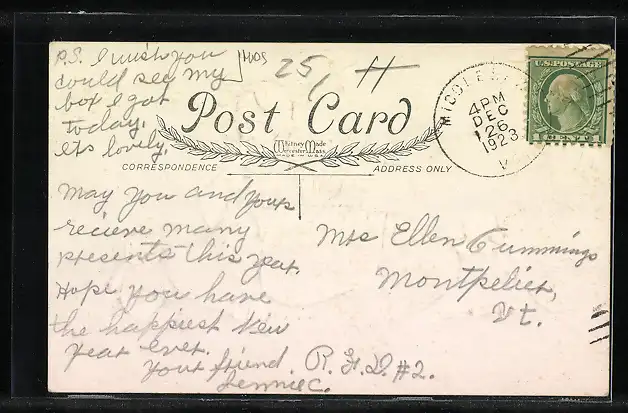 P.S. I wish you
could see my
box I got
today.
Its lovely.
25/
Post Card
Whitney Made
Worcester Mass
MADE IN U.S.A.
CORRESPONDENCE
ADDRESS ONLY
4 PM
DEC
26
1923
U.S. POSTAGE
May you and yours
recieve many
presents this year.
Hope you have
the happiest New
year ever.
your friend.
Jennie C.
Mrs Ellen Cummings
Montpelier,
Vt.
R.F.D. #2.